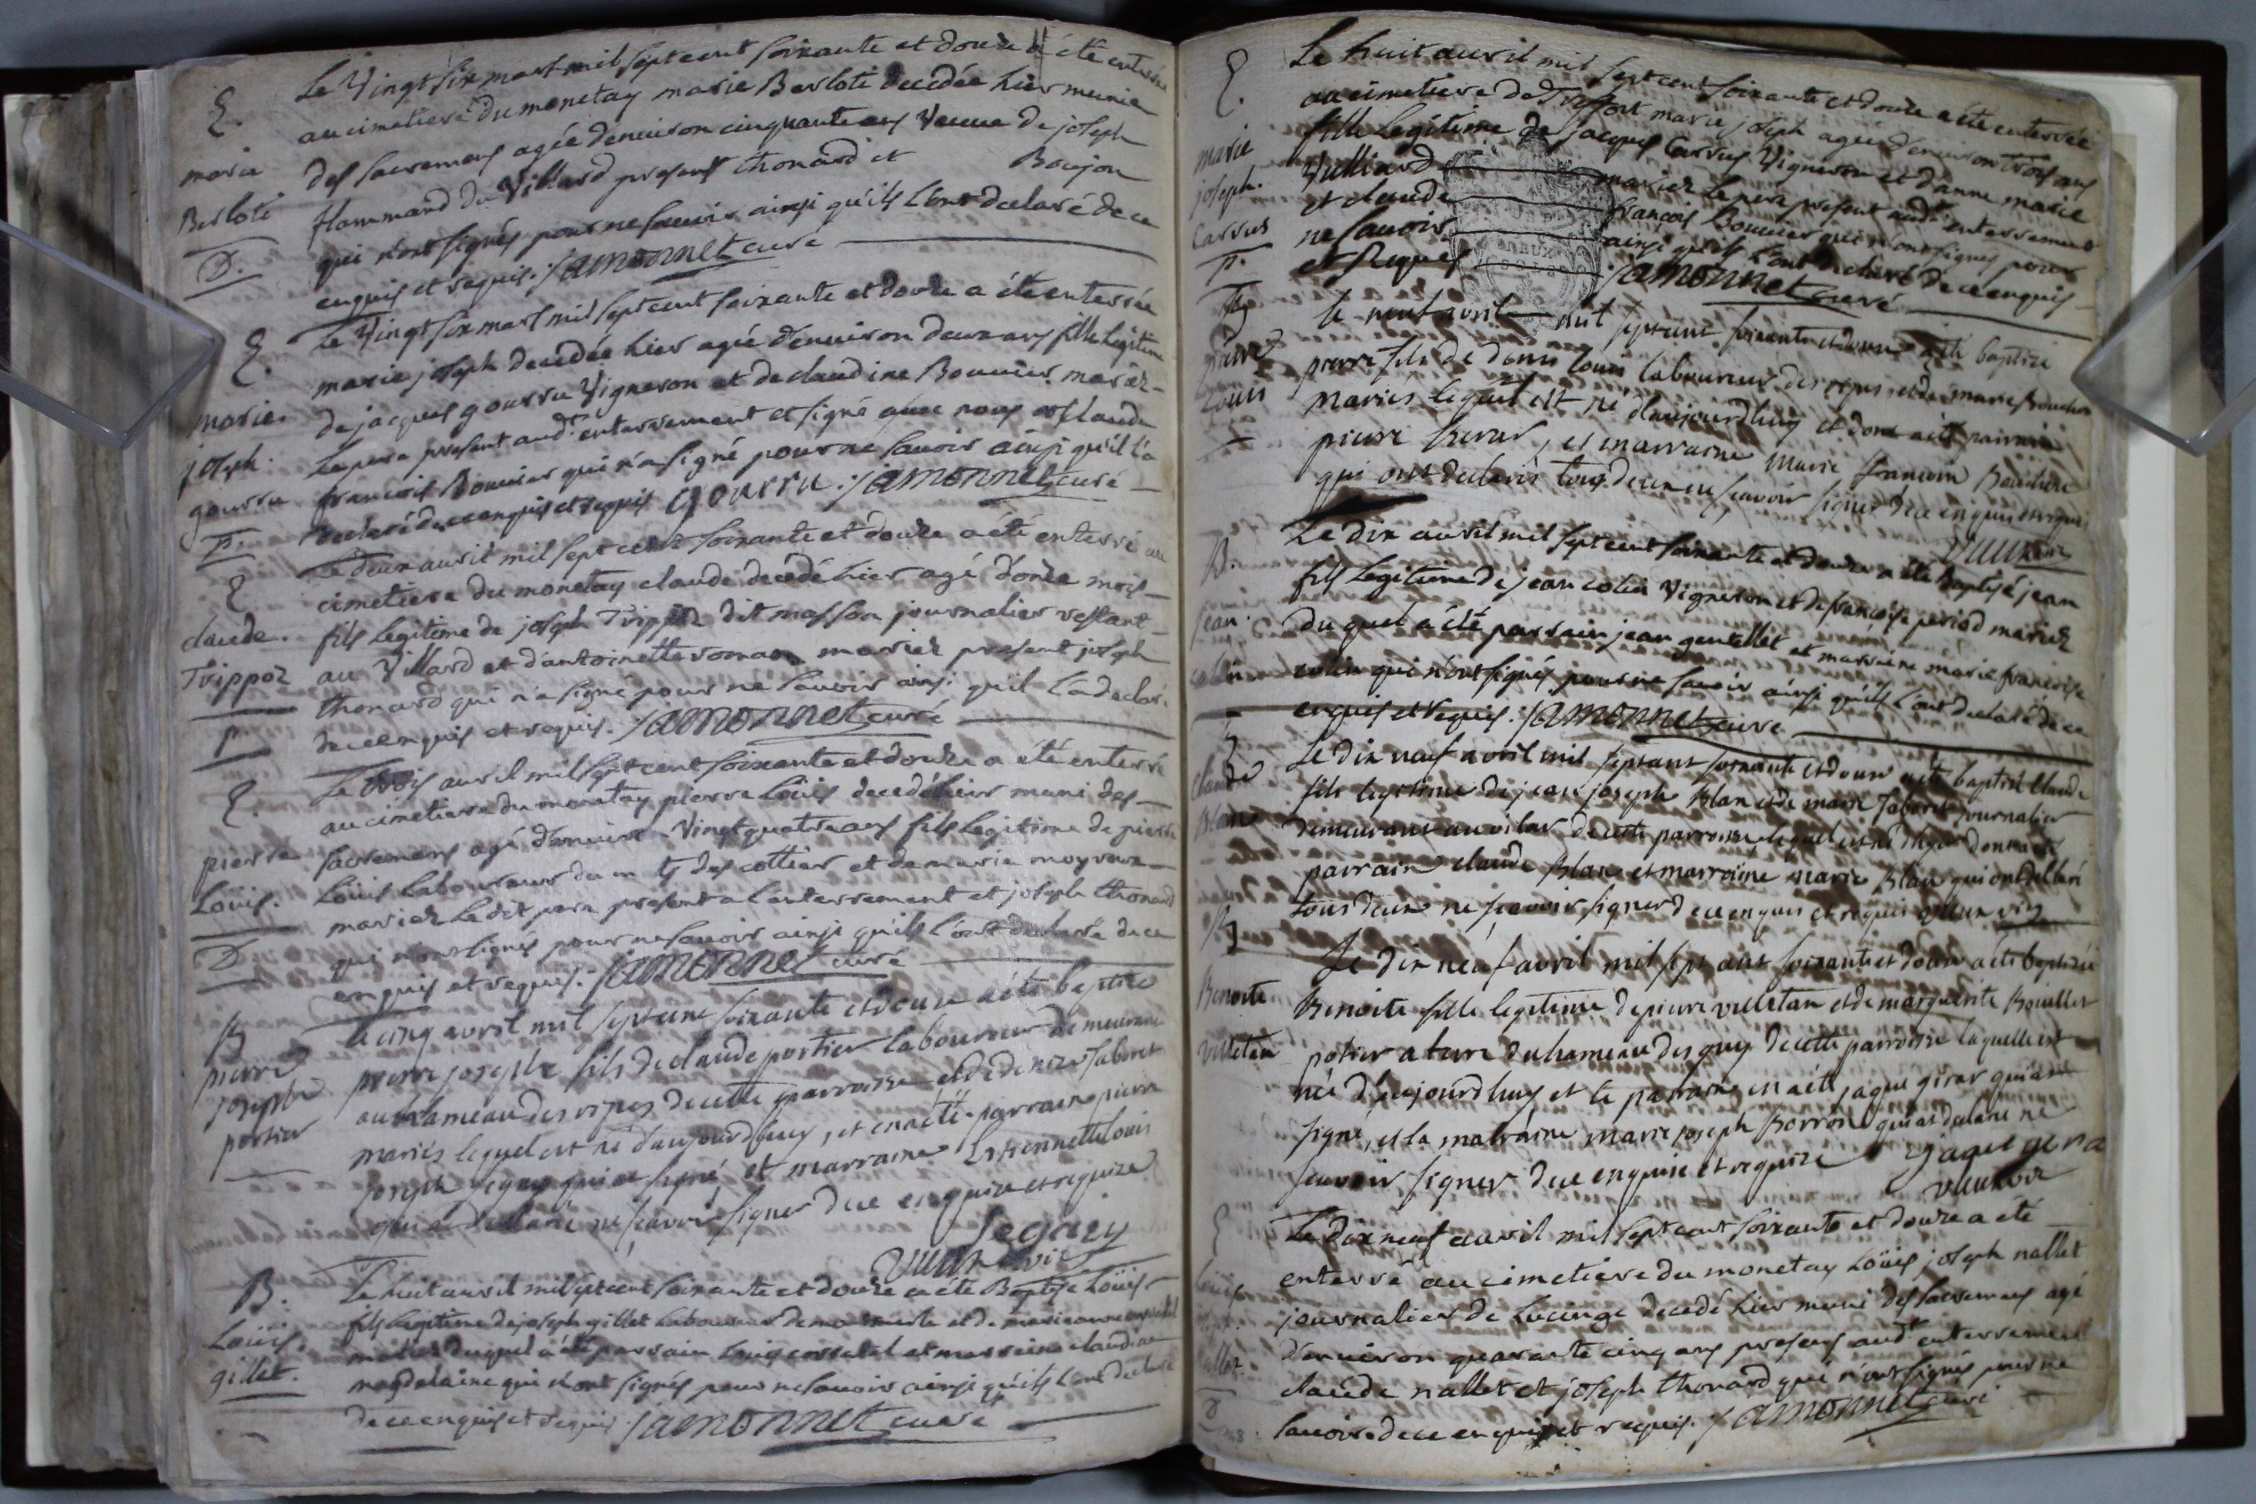 Le Vingt six mars mil sept cent soixante et douze a été enterrée
E.
au cimetiere du monetay marie Berloti decedée hier munie
maria
des sacremens agée d'environ cinquante ans Veuve de joseph
Berloti
flammand du Villard presens thonard et Boujon
D.
qui n'ont signés pour ne savoir ainsi qu'ils l'ont declaré de ce
enquis et requis. jamonnet curé
Le Vingt six mars mil sept cent soixante et douze a été enterrée
E.
marie joseph decedée hier agée d'environ deux ans fille legitime
marie
de jacques gourru Vigneron et de claudine Bouvier mariéz
joseph
Le pere present aud.t enterrement et signé avec nous et claude
gourru
francois Bouvier qui n'a signé pour ne savoir ainsi qu'il l'a
P.
declaré de ce enquis et requis gourru. jamonnet curé
Le deux avril mil sept cent soixante et douze a été enterré au
E
cimetiere du monetay claude decedé hier agé d'onze mois
claude
fils legitime de joseph Trippoz dit masson journalier restant
Trippoz
au Villard et d'antoinette roman mariéz present joseph
P
thonard qui n'a signé pour ne savoir ainsi qu'il l'a declaré
de ce enquis et requis. jamonnet curé
Le trois avril mil sept cent soixante et douze a été enterré
E.
au cimetiere du monetay pierre Loüis decedé hier muni des
pierre
sacremens agé d'environ Vingt quatre ans fils legitime de pierre
Loüis.
Loüis Laboureur du des cottier et de marie moyroux
mariéz Ledit pere present a l'enterrement et joseph thonard
D
qui n'ont signés pour ne savoir ainsi qu'ils l'ont declaré de ce
enquis et requis. jamonnet curé
B
le cinq avril mil sept cent soixante et douze a été baptizé
pierre
pierre joseph fils de claude portier laboureur demeurant
joseph
au hameau des ripes de cette parroisse et de denize Jaboret
portier
mariés lequel est né d'aujourdhuy, et en a été parrain pierre
joseph segay qui a signé et marraine Estiennette Louis
qui a declaré ne sçavoir signer de ce enquize et requize
segaiy
B.
Le huit avril mil sept cent soixante et douze a été Baptisé Loüis
Loüis
fils legitime de joseph gillet Laboureur de et de marie anne
gillet.
mariéz duquel a été parrain Louis et marraine claudine
magdelaine qui n'ont signés pour ne savoir ainsi qu'ils l'ont declaré
de ce enquis et requis jamonnet curé
E.
Le huit avril mil sept cent soixante et douze a été enterrée
au cimetiere de Treffort marie joseph agée d'environ trois ans
marie
fille legitime de jacques Carrus Vigneron et d'anne marie
joseph.
Vulliard mariéz Le pere present aud.t enterrement
Carrus
et claude francois Bouvier qui n'ont signés pour
P.
ne savoir ainsi qu'ils l'ont declaré de ce enquis
et Requis jamonnet curé
le neuf avril mil sept cent soixante et douze a été baptizé
pierre
pierre fils de denis louis laboureur des ripes et de marie Bouchon
Louis
mariés lequel est né d'aujourdhuy et dont a été parrain
pierre , et marraine Marie francoise Bouchon
qui ont declarés tous deux ne sçavoir signer de ce enquis et requis
B.
Le dix avril mil sept cent soixante et douze a été baptisé jean
jean
fils legitime de jean colin Vigneron et de francoise period mariéz
colin
duquel a été parrain jean gentellet et marraine marie francoise
colin qui n'ont signés pour ne savoir ainsi qu'ils l'ont declaré de ce
enquis et requis. jamonnet curé
Le dix neuf avril mil sept cent soixante et douze a été baptisé Claude
claude
fils legitime de jean joseph Blanc et de marie Jaboret journalier
Blanc
demeurant au vilar de cette parroisse lequel est né d'hyer dont a été
parrain claude Blanc et marraine Marie Blanc qui ont declaré
tous deux ne sçavoir signer de ce enquis et requis
Le dix neuf avril mil sept cent soixante et douze a été baptizée
Benoite
Benoite fille legitime de pierre vulletan et de marguerite Bouillet
vulletan
potier a terre du hameau des guys de cette parroisse laquelle est
née d'aujourdhuy et le parrain en a été jaque girar qui a
signé, et la marraine marie joseph Borron qui a declaré ne
sçavoir signer de ce enquize et requize jaque gera
E
Le dix neuf avril mil sept cent soixante et douze a été
enterré au cimetiere du monetay Loüis joseph nallet
Loüis
journalier de Lucinge decedé hier muni des sacremens agé
d'environ quarante cinq ans presens aud.t enterrement
claude nallet et joseph thonard qui n'ont signés pour ne
savoir de ce enquis et requis. jamonnet curé